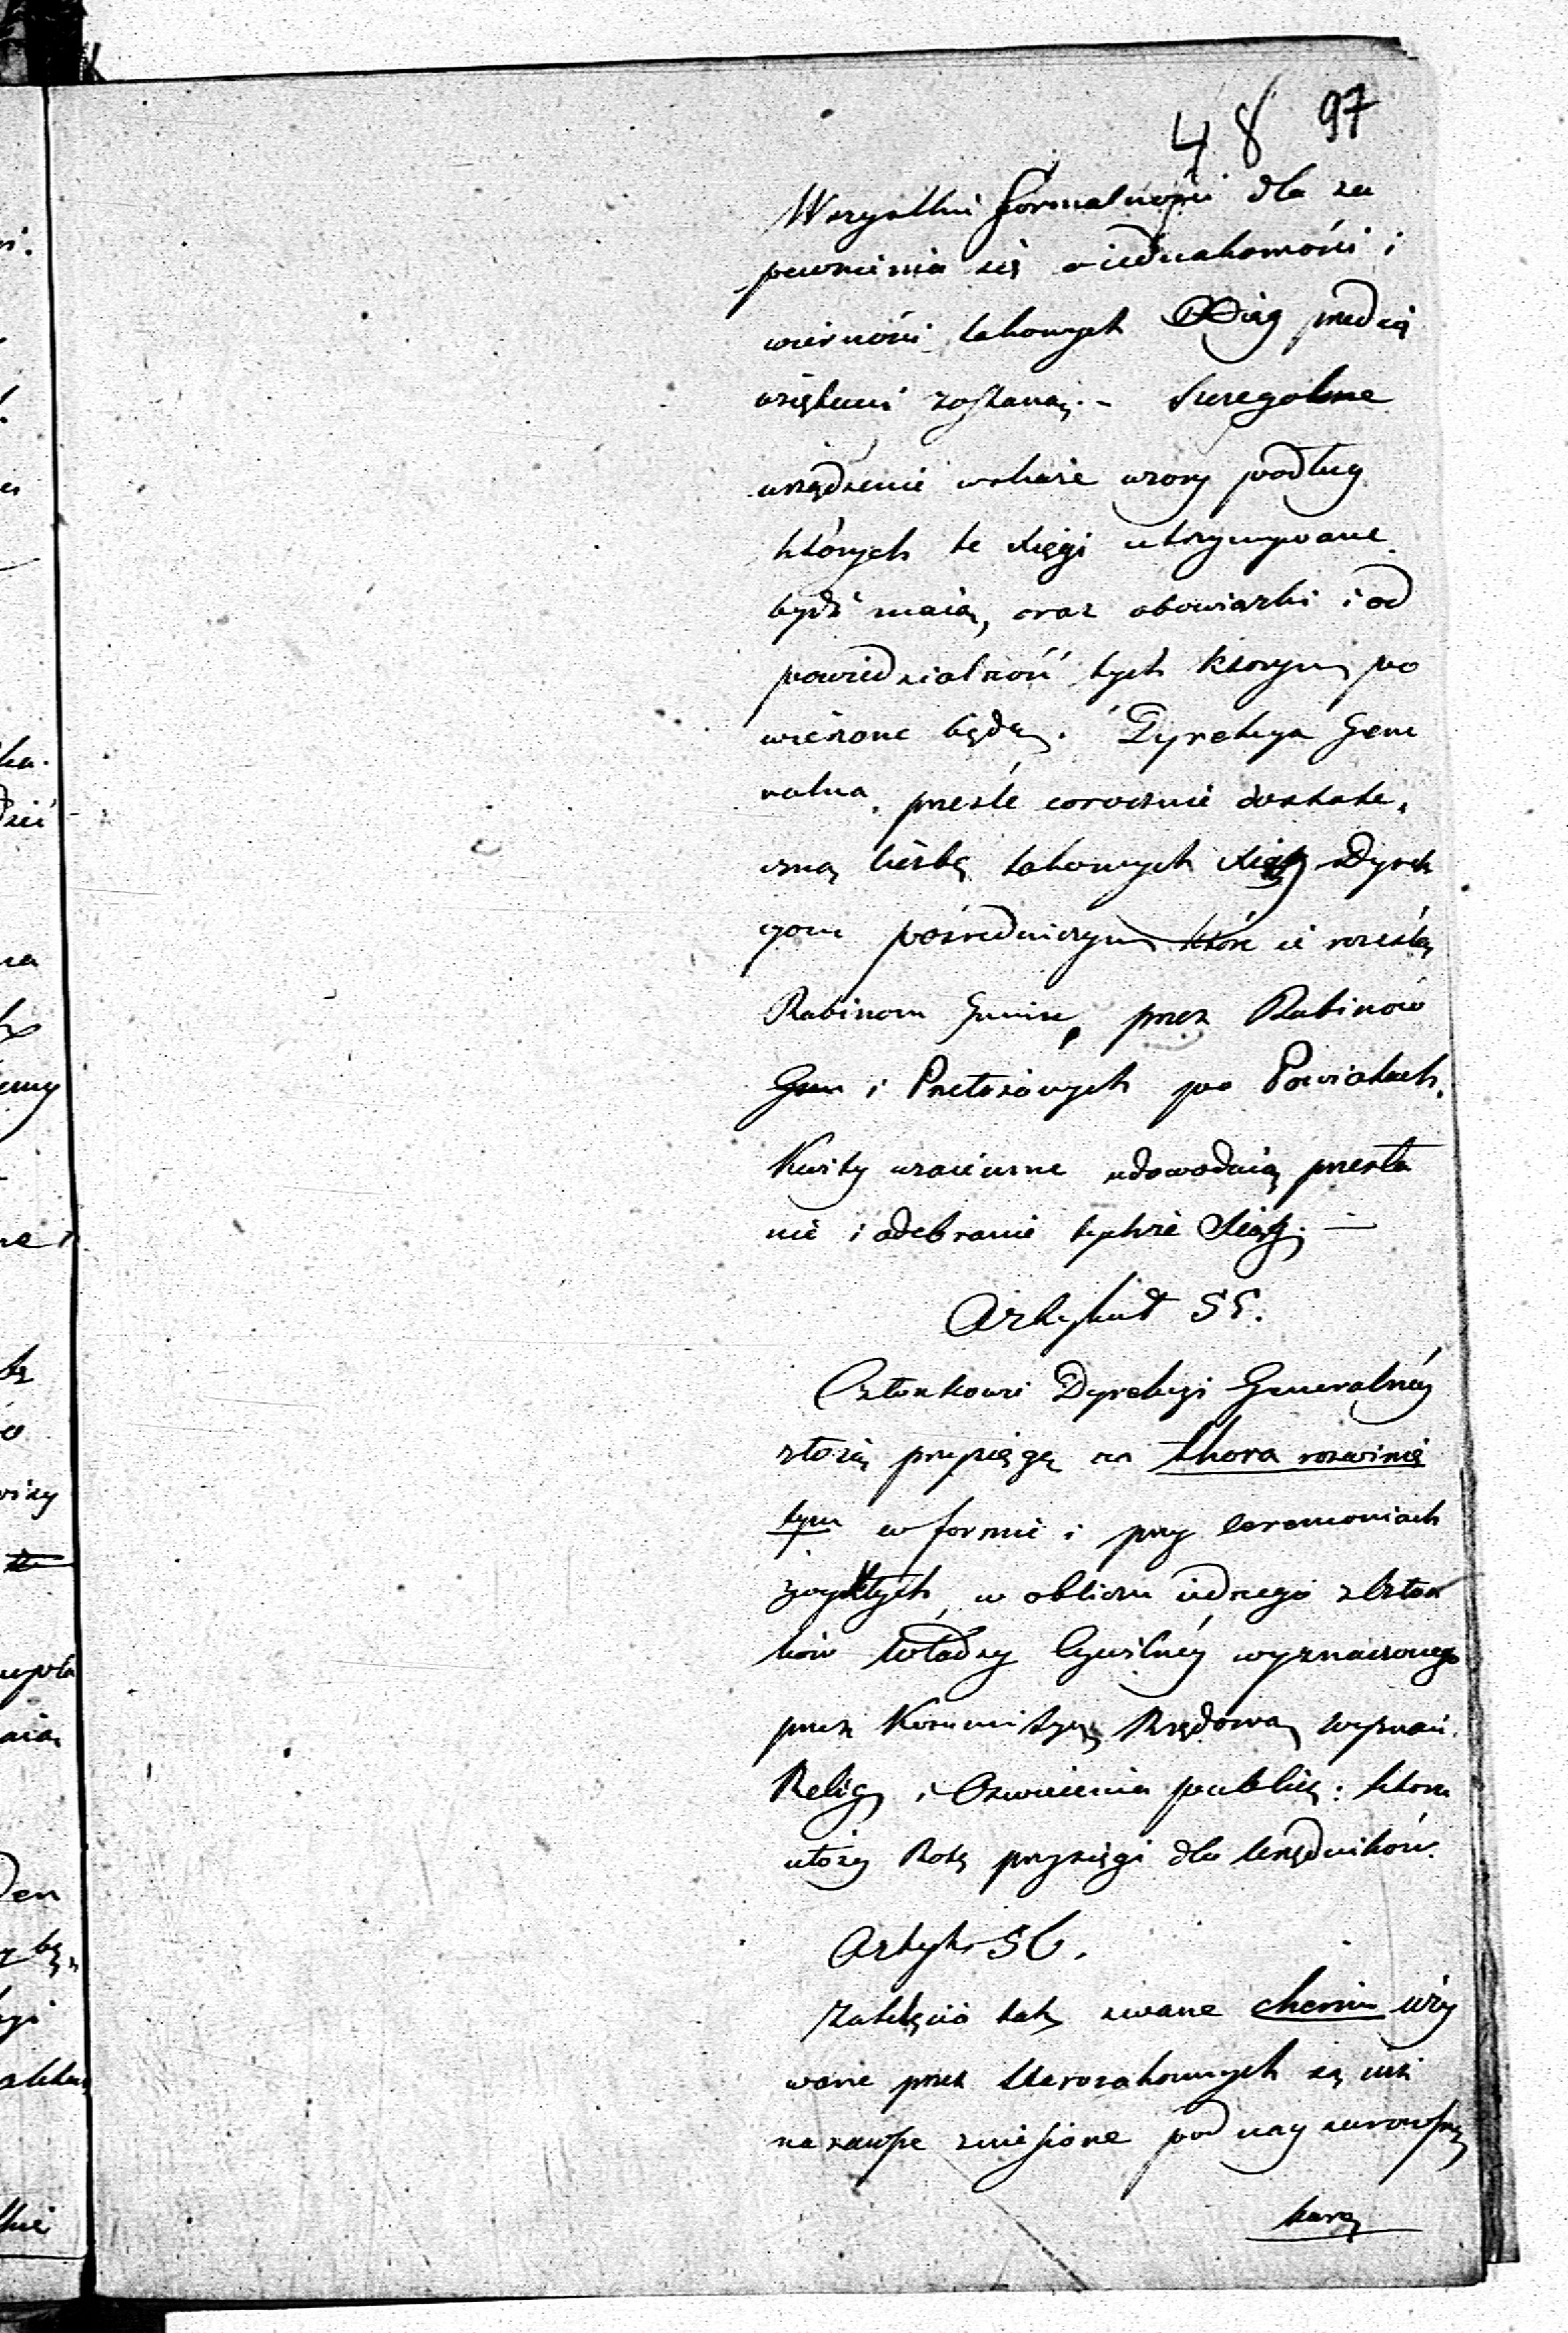 48 97
Wszystkie formalności dla za
pewnienia się o iednakowości i
wierności takowych Xiąg przedsię
wziętemi zostaną. - Szczegolne
urządzenie wskaże wzory podług
których te xięgi utrzymywane
bydź maią, oraz obowiązki i od
powiedzialność tych ktorym po
wieżone będą. Dyrekcya Gene
ralna, prześle corocznie dostate,
czną liczbę takowych xiąg Dyrek
cyom pośredniczym które ie rozeszlą
Rabinom Gmin, przez Rabinow
Gmin i Przełożonych po Powiatach.
Kwity wzaiemne udowodnią przesła
nie i odebranie tychże Xiąg. —
Artykuł 55.
Członkowie Dyrekcyi Generalnéy
złożą przysięgę na thora rozwinię
tym w formie i przy ceremoniach
zwykłych, w obliczu iednego z Człon
ków Władzy Cywilnéy wyznaczonego
przez Kommissyę Rządową wyznań.
Relig. i Oswiecenia publicz: ktora
ułoży Rotę przysięgi dla Urzędników.
Artyk. 56.
Zaklęcia tak zwane cherim uży
wane przez Starozakonnych są niniey
na zawsze zniesione pod nay surowszą
karą